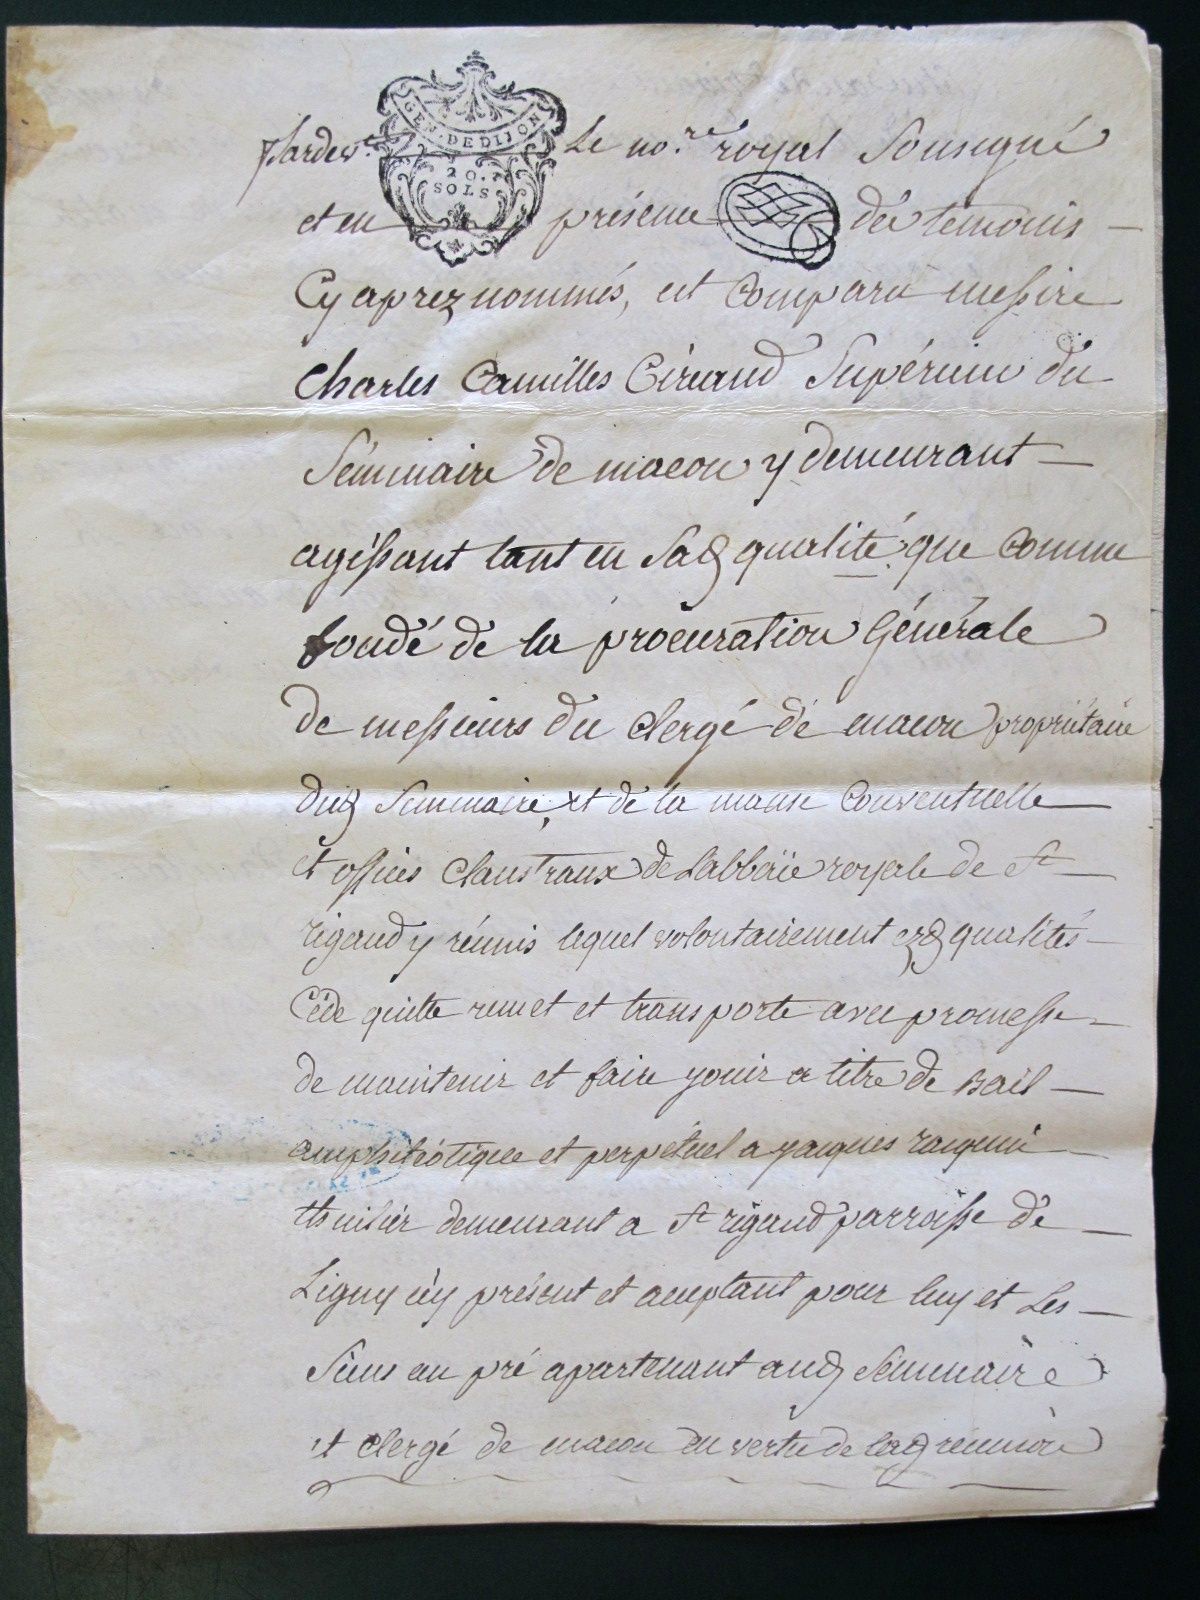 GEN. DE DIJON
20.
SOLS
Pardevt Le nore royal Sousigné
et en présence des temoins
Cy aprez nommés, est Comparu messire
Charles Camilles Géreaud Supérieur du
Séminaire de macon y demeurant
agissant tant en Sad qualité que Comme
fondé de la procuration Générale
de messieurs du Clergé de macon propriétaire
dud Seminaire, et de la manse Conventuelle
et offices Claustraux de Labbaïe royale de St
rigaud y réunis lequel volontairement ezd qualités
Cède quitte remet et transporte avec promesse
de maintenir et faire youir a titre de Bail
amphiteotique et perpétuel a yacques
thuilier demeurant a St rigaud parroisse de
Ligny icy présent et aceptant pour luy et Les
Siens un pré apartenant aud Séminaire
et Clergé de macon en vertu de lad reunion